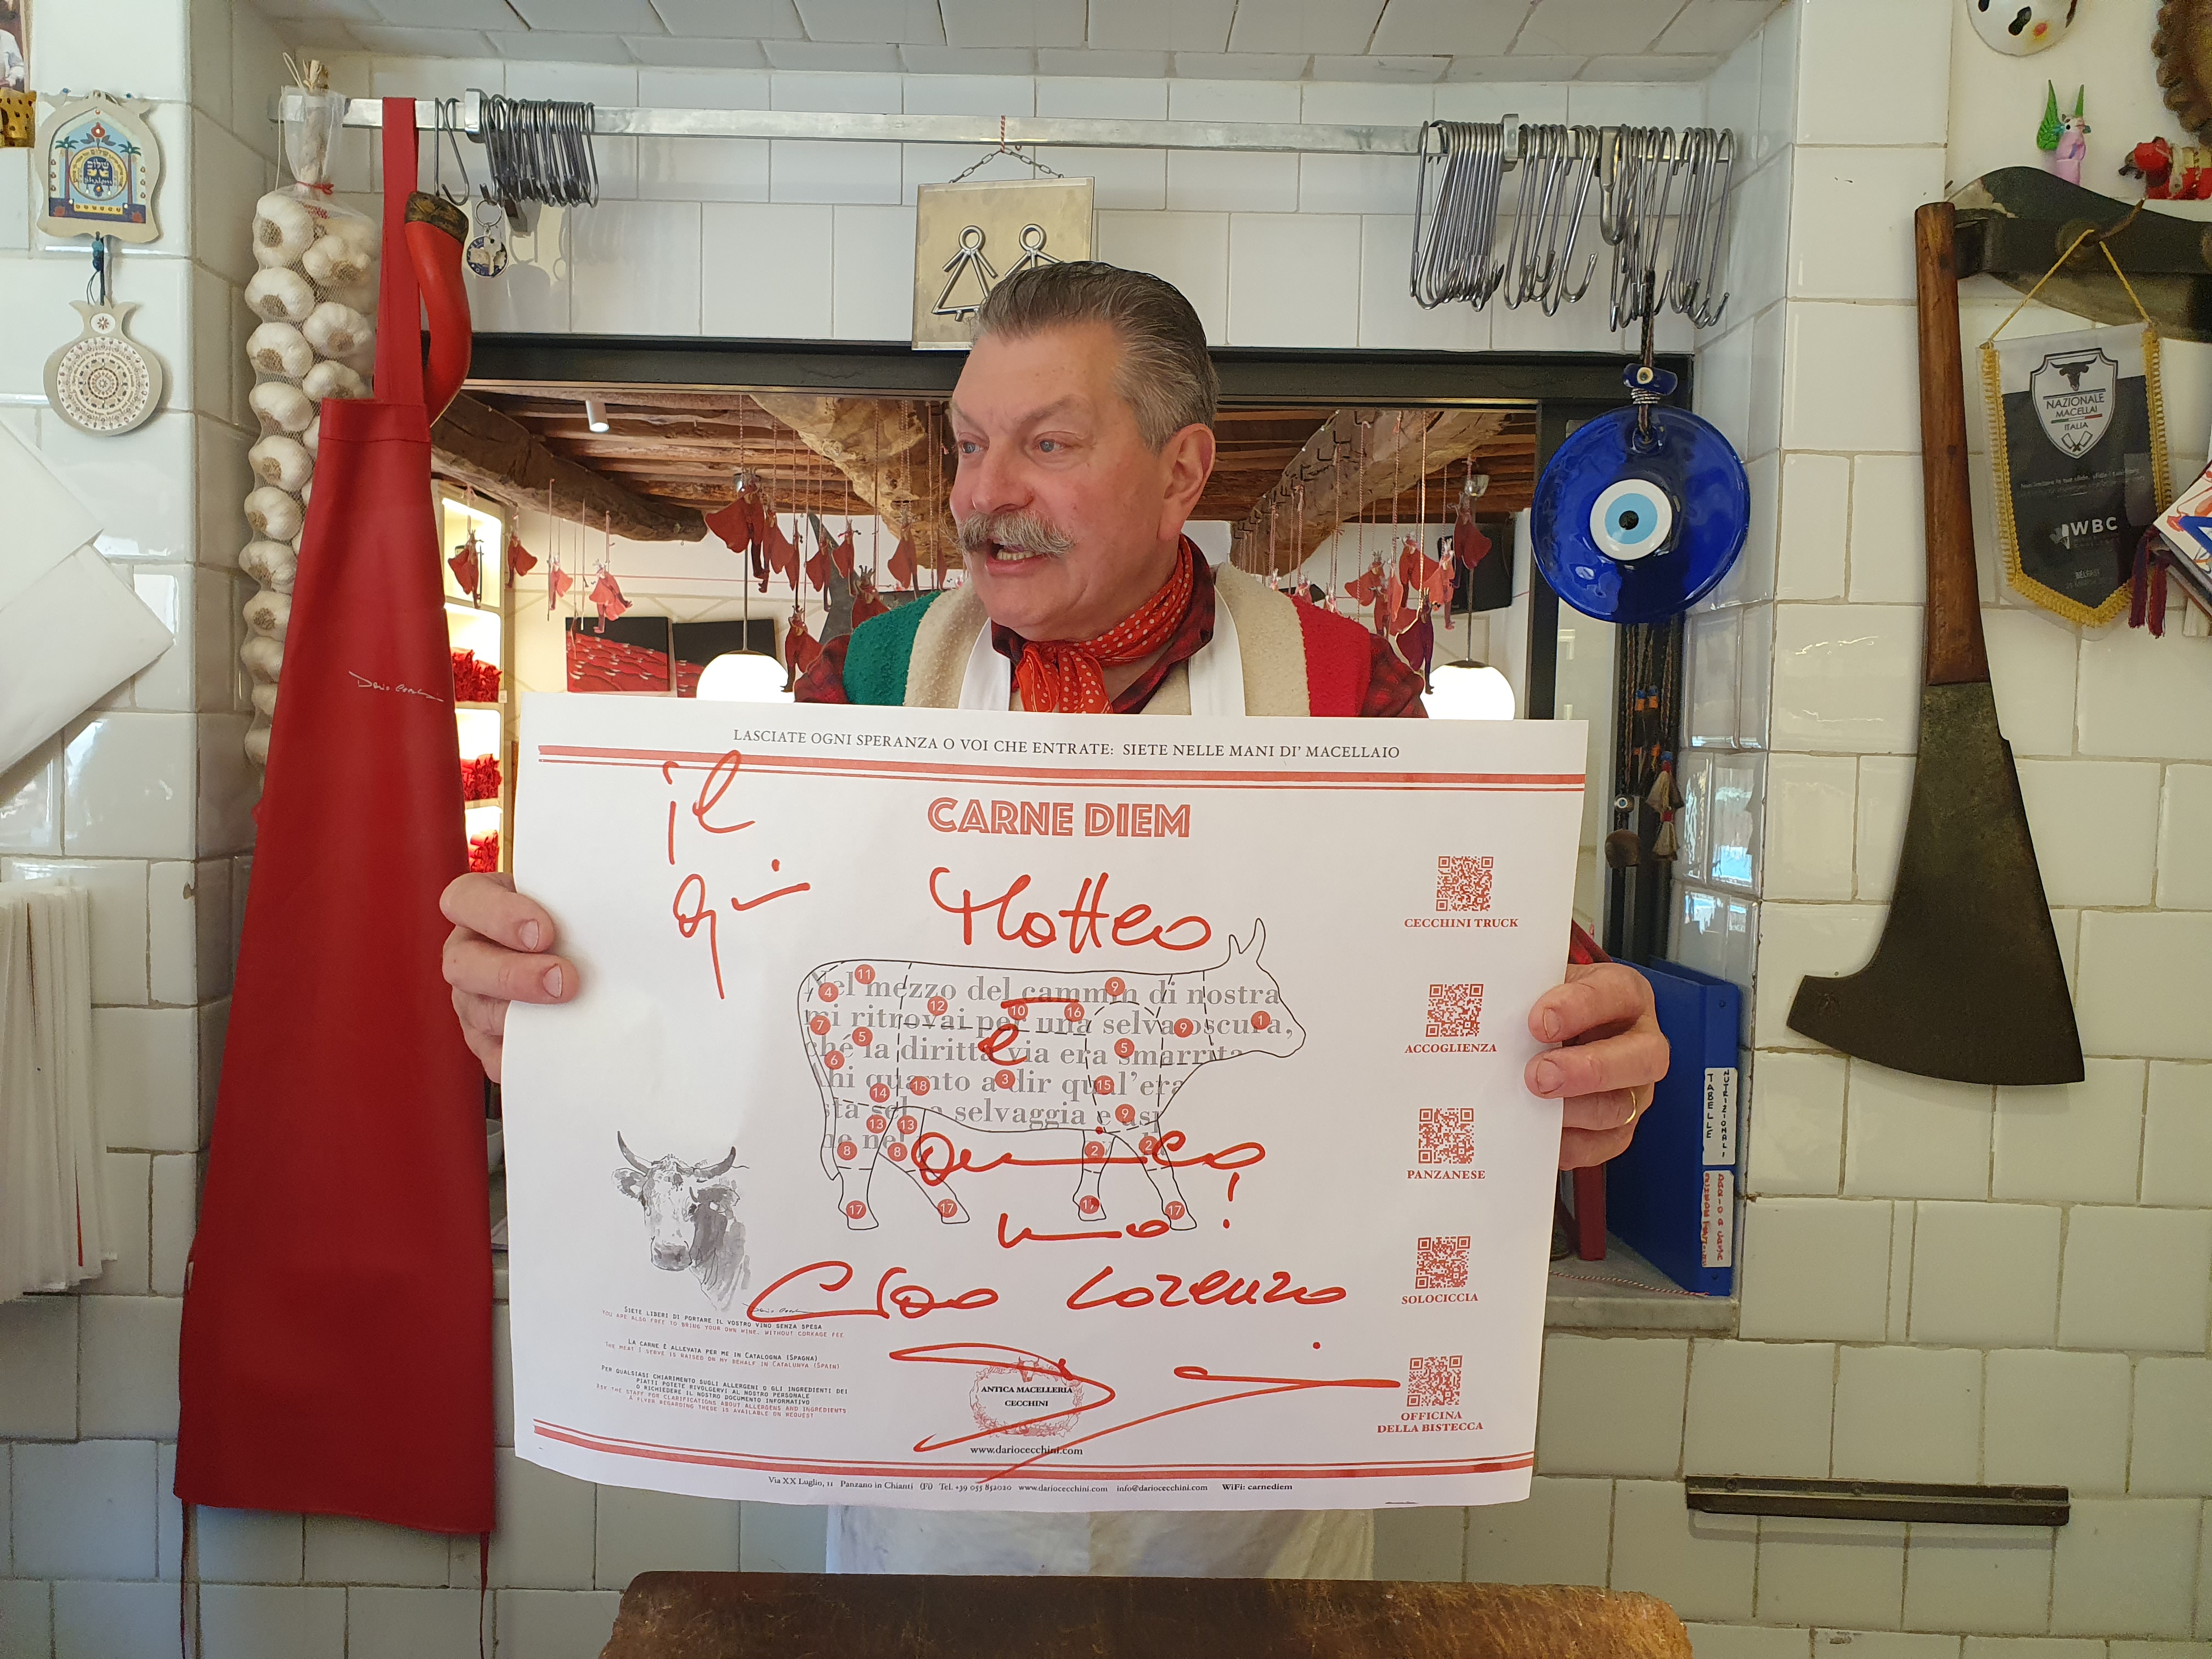 LASCIATE OGNI SPERANZA O VOI CHE ENTRATE: SIETE NELLE MANI DI' MACELLAIO
CARNE DIEM
il
qui
Matteo
è
Nel mezzo del cammin di nostra
mi ritrovai per una selva oscura,
ché la diritta via era smarrita
hi quanto a dir qual'era
sta sel a selvaggia e as
ne nel
11
4
9
12
10
16
1
7
9
5
5
6
3
18
15
14
9
13
13
8
8
2
2
17
17
17
17
amico
mio!
Ciao Lorenzo
CECCHINI TRUCK
ACCOGLIENZA
PANZANESE
SOLOCICCIA
OFFICINA
DELLA BISTECCA
SIETE LIBERI DI PORTARE IL VOSTRO VINO SENZA SPESA
YOU ARE ALSO FREE TO BRING YOUR OWN WINE, WITHOUT CORKAGE FEE
LA CARNE È ALLEVATA PER ME IN CATALOGNA (SPAGNA)
THE MEAT I SERVE IS RAISED ON MY BEHALF IN CATALUNYA (SPAIN)
PER QUALSIASI CHIARIMENTO SUGLI ALLERGENI O GLI INGREDIENTI DEI
PIATTI POTETE RIVOLGERVI AL NOSTRO PERSONALE
O RICHIEDERE IL NOSTRO DOCUMENTO INFORMATIVO
THE STAFF FOR CLARIFICATIONS ABOUT ALLERGENS AND INGREDIENTS
A FLYER REGARDING THESE IS AVAILABLE ON REQUEST
ANTICA MACELLERIA
CECCHINI
www.dariocecchini.com
Via XX Luglio, 11 Panzano in Chianti (Fi) Tel. +39 055 852020 www.dariocecchini.com info@dariocecchini.com WiFi: carnediem
NAZIONALE
MACELLAI
ITALIA
WBC
TABELLE
NUTRIZIONALI